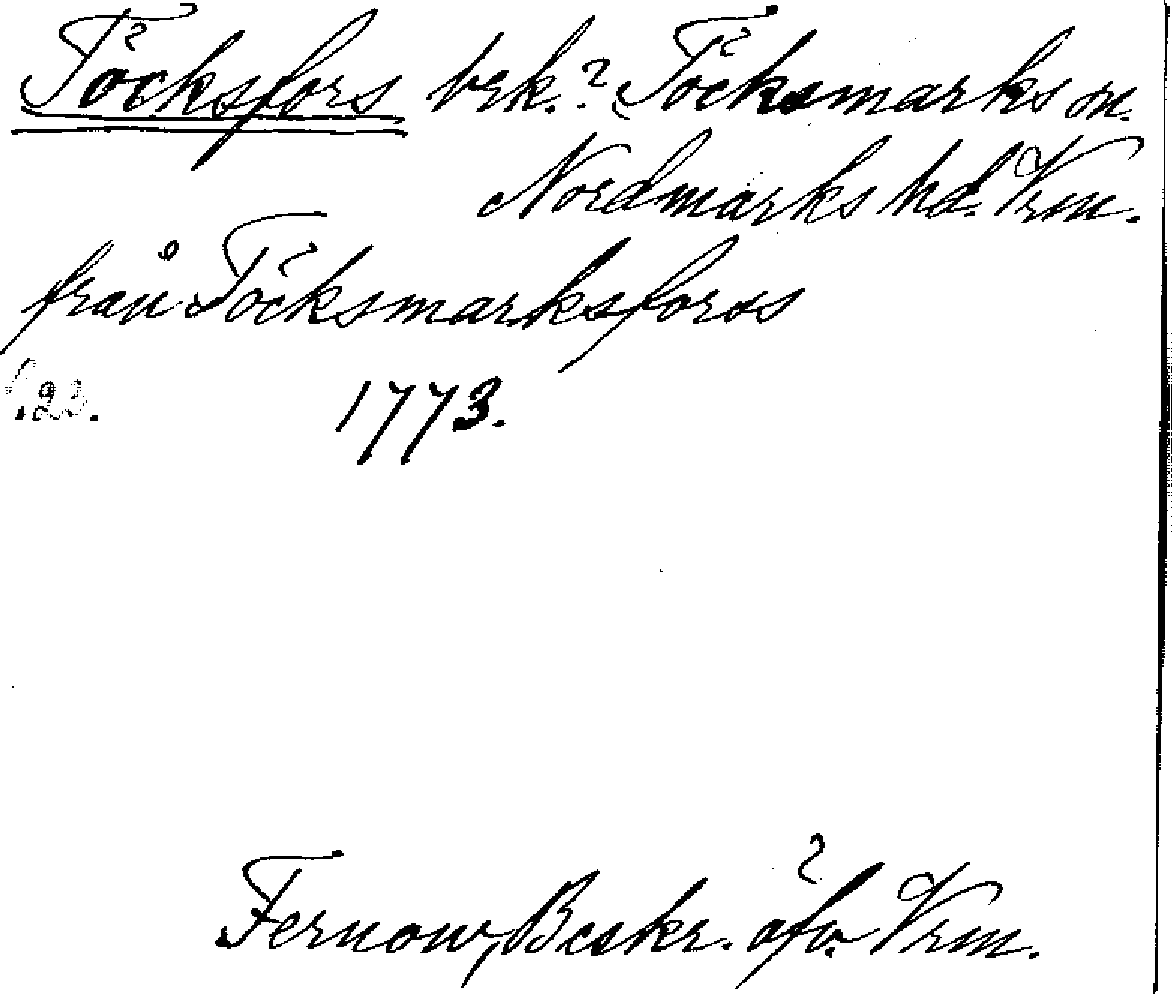 Töcksfors brk.? Töcksmarks sn.
Nordmarks hd. Vrm.
från Töcksmarksforss
s.23. 1773.
Fernow, Beskr. öfv. Vrm.